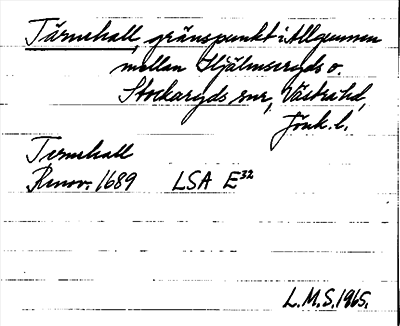 Tärnehall, gränspunkt i Allgunnen
mellan Hjälmseryds o.
Stockaryds snr, Västra hd,
Jönk. l.
Ternehall
Renov. 1689 LSA E³²
L.M.S. 1965.